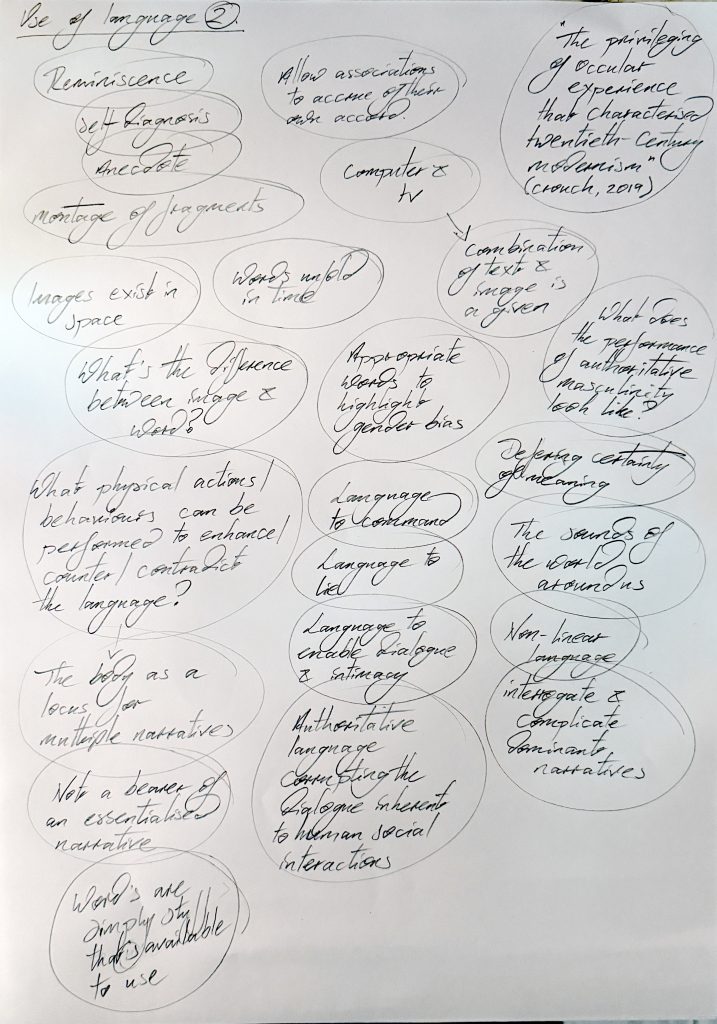 Use of language 2.
Reminiscence
Self diagnosis
Anecdote
Montage of fragments
Images exist in
space
Words unfold
in time
What's the difference
between image &
word?
What physical actions/
behaviours can be
performed to enhance/
counter/contradict
the language?
The body as a
locus for
multiple narratives
Not a bearer of
an essentialised
narrative
Words are
simply stuff
that is available
to use
Allow associations
to accrue of their
own accord.
Computer &
tv
Combination
of text &
image is
a given
Appropriate
words to
highlight
gender bias
Language
to command
Language to
lie
Language to
enable dialogue
& intimacy
Authoritative
language
corrupting the
dialogue inherent
to human social
interactions
"The privileging
of occular
experience
that characterised
twentieth-century
modernism"
(Crouch, 2019)
What does
the performance
of authoritative
masculinity
look like?
Defering certainty
of meaning
The sounds of
the world
around us
Non-linear
language
interrogate &
complicate
dominant
narratives